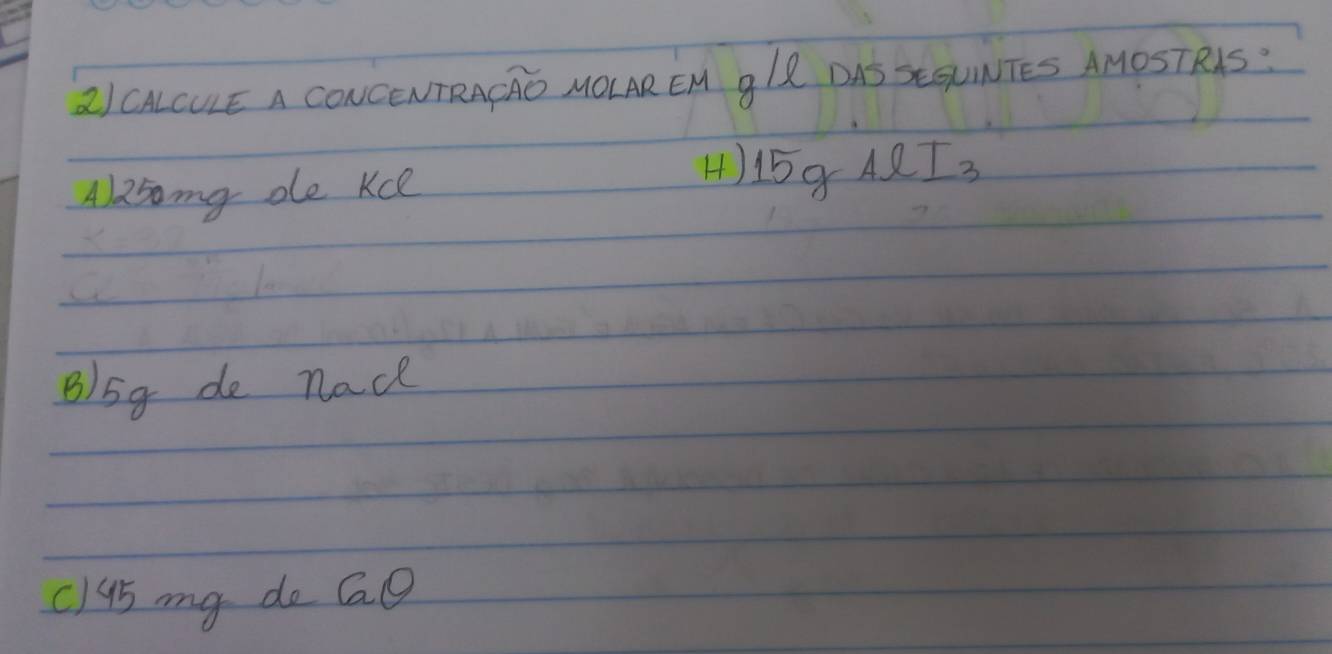 2) CALCULE A CONCENTRAÇÃO MOLAR EM g/l DAS SEGUINTES AMOSTRAS:
A) 250mg de Kcl
H) 15g AlI3
B) 5g de nacl
C) 45 mg de CaO